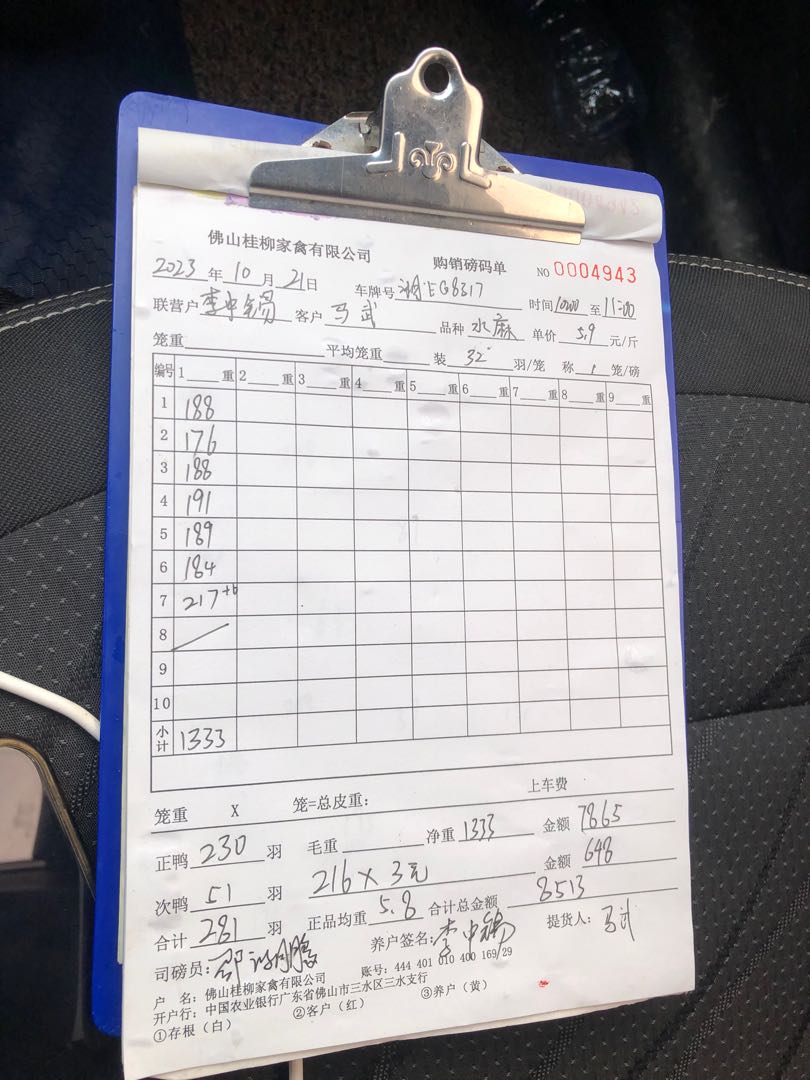 佛山桂柳家禽有限公司 购销磅码单 NO 0004943
2023年10月21日 车牌号 EG8317 时间 10:00 至 11:00
联营户 李中锡 客户 马武 品种 水麻 单价 5.9 元/斤
笼重 平均笼重 装 32 羽/笼 称 1 笼/磅
编号 1 重 2 重 3 重 4 重 5 重 6 重 7 重 8 重 9 重
1 188
2 176
3 188
4 191
5 189
6 184
7 217+6
8
9
10
小计 1333
笼重 X 笼=总皮重: 上车费
正鸭 230 羽 毛重 净重 1333 金额 7865
次鸭 51 羽 216×3元 金额 648
合计 281 羽 正品均重 5.8 合计总金额 8513
司磅员: 养户签名: 李中锡 提货人: 马武
户 名: 佛山桂柳家禽有限公司 账号: 444 401 010 400 169/29
开户行: 中国农业银行广东省佛山市三水区三水支行
①存根(白) ②客户(红) ③养户(黄)